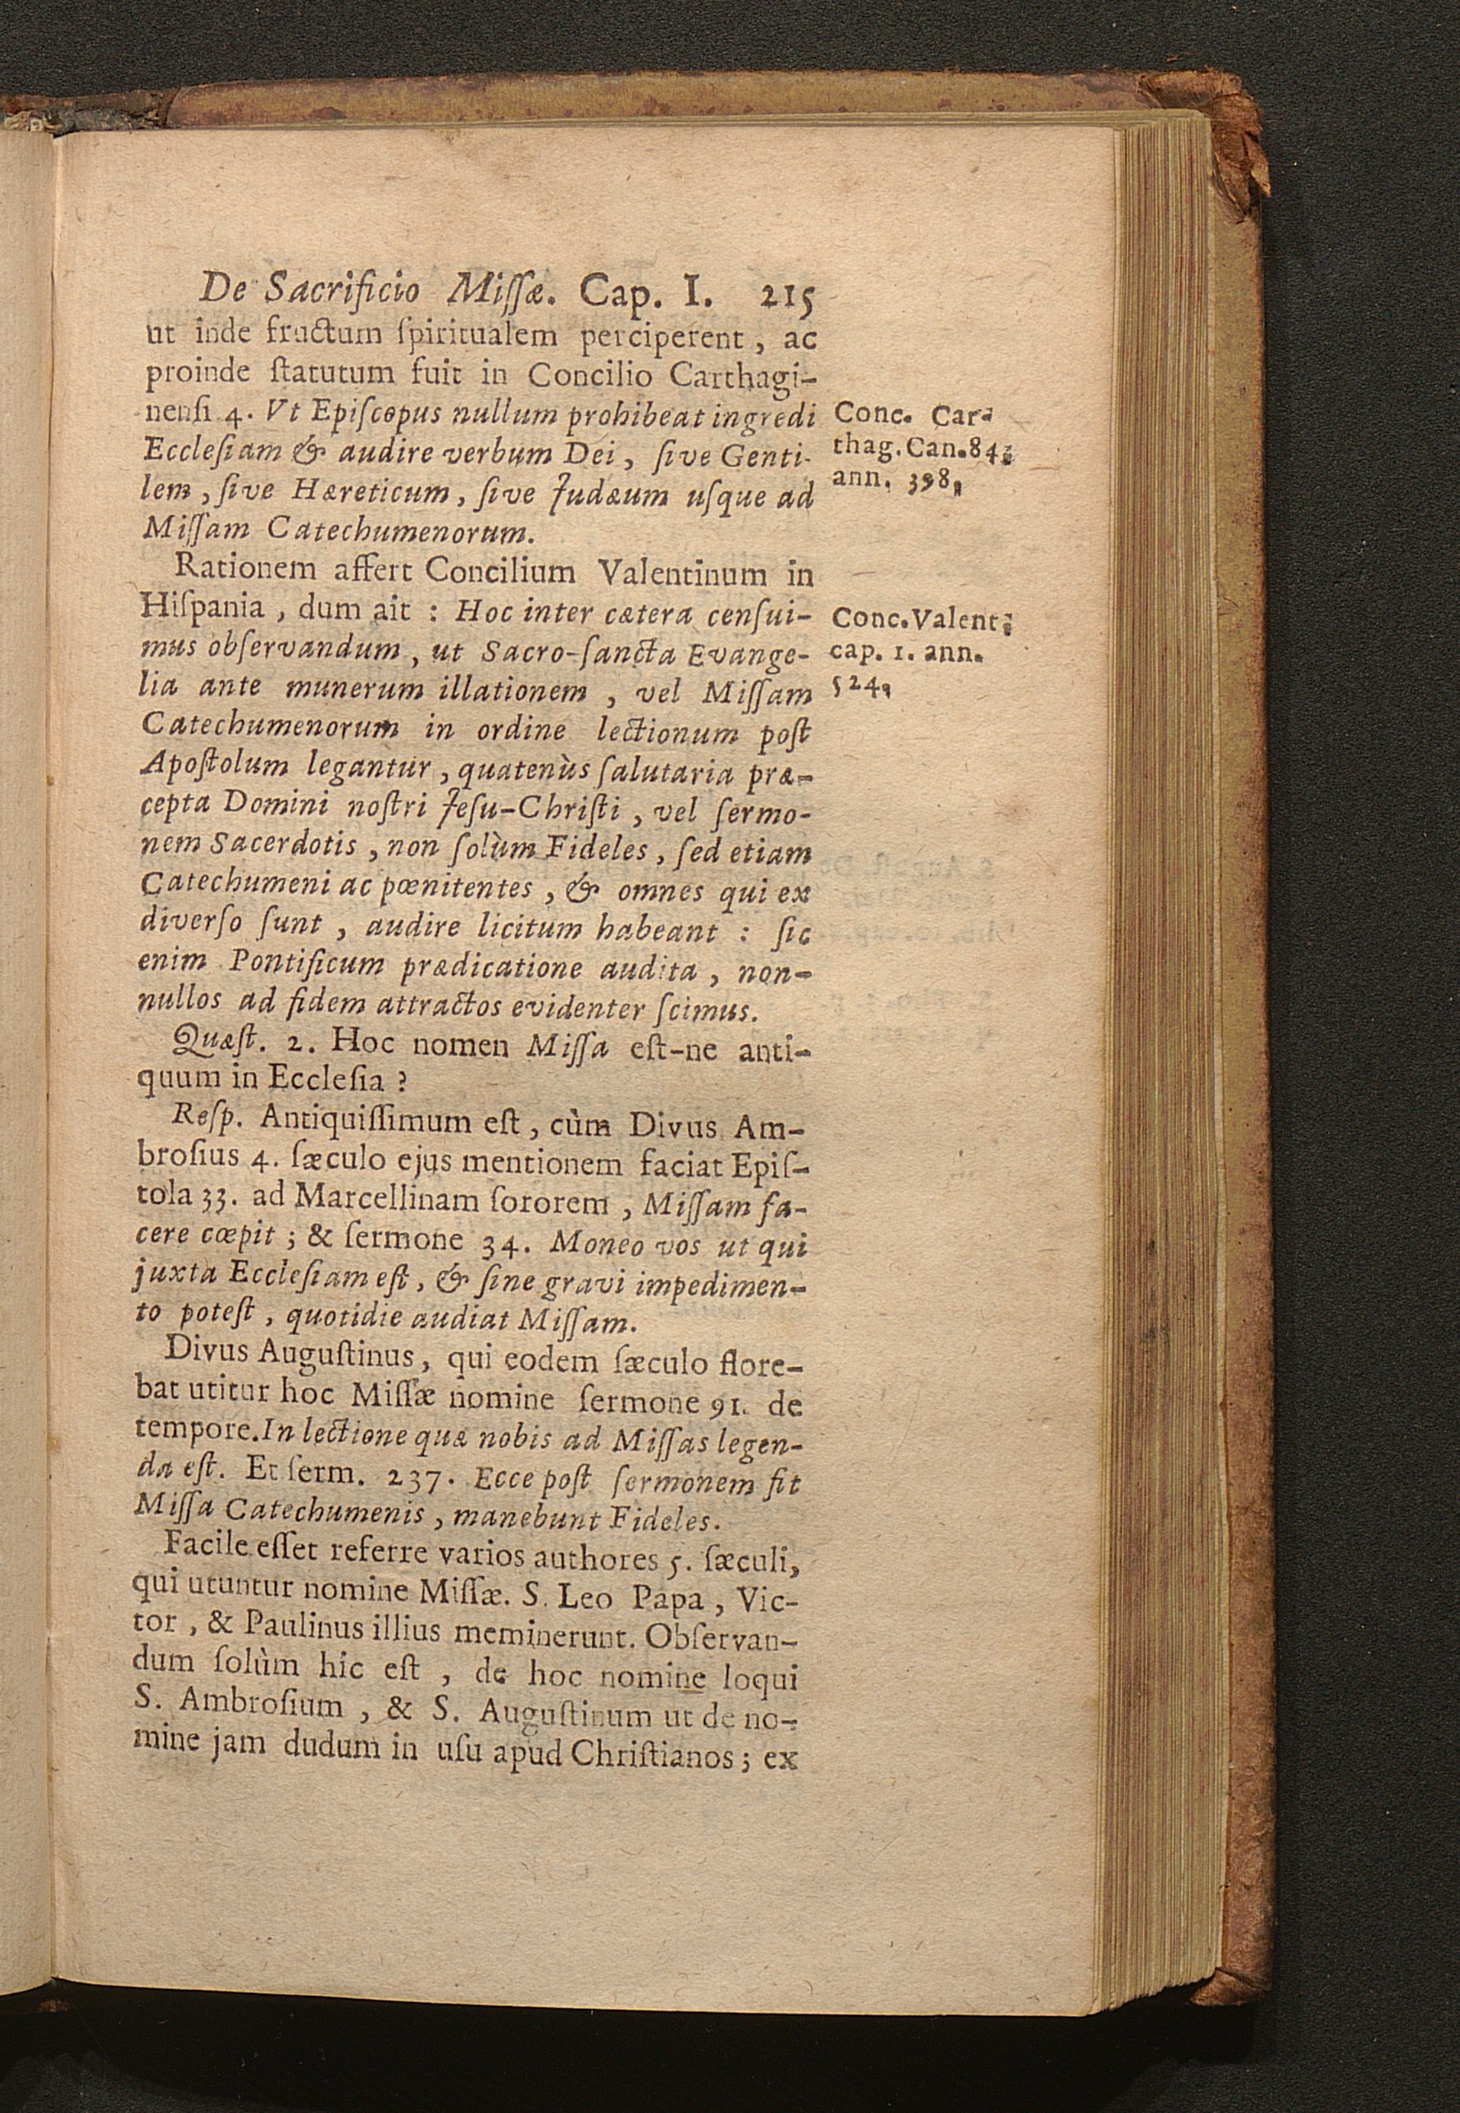 De Sacrificio Miſſæ. Cap. I. 215
ut inde fructum ſpiritualem perciperent, ac
proinde ſtatutum fuit in Concilio Carthagi-
nenſi 4. Vt Epiſcopus nullum prohibeat ingredi
Eccleſiam & audire verbum Dei, ſive Genti-
lem, ſive Hæreticum, ſive Judæum uſque ad
Miſſam Catechumenorum.
Conc. Car-
thag. Can. 84.
ann. 398.
Rationem affert Concilium Valentinum in
Hiſpania, dum ait : Hoc inter cætera cenſui-
mus obſervandum, ut Sacro-ſancta Evange-
lia ante munerum illationem, vel Miſſam
Catechumenorum in ordine lectionum poſt
Apoſtolum legantur, quatenùs ſalutaria præ-
cepta Domini noſtri Jeſu-Chriſti, vel ſermo-
nem Sacerdotis, non ſolùm Fideles, ſed etiam
Catechumeni ac pœnitentes, & omnes qui ex
diverſo ſunt, audire licitum habeant : ſic
enim Pontificum prædicatione audita, non-
nullos ad fidem attractos evidenter ſcimus.
Conc. Valent.
cap. 1. ann.
524.
Quæſt. 2. Hoc nomen Miſſa eſt-ne anti-
quum in Eccleſia ?
Reſp. Antiquiſſimum eſt, cùm Divus Am-
broſius 4. ſæculo ejus mentionem faciat Epiſ-
tola 33. ad Marcellinam ſororem, Miſſam fa-
cere cœpit ; & ſermone 34. Moneo vos ut qui
juxta Eccleſiam eſt, & ſine gravi impedimen-
to poteſt, quotidie audiat Miſſam.
Divus Auguſtinus, qui eodem ſæculo flore-
bat utitur hoc Miſſæ nomine ſermone 91. de
tempore. In lectione quæ nobis ad Miſſas legen-
da eſt. Et ſerm. 237. Ecce poſt ſermonem fit
Miſſa Catechumenis, manebunt Fideles.
Facile eſſet referre varios authores 5. ſæculi,
qui utuntur nomine Miſſæ. S. Leo Papa, Vic-
tor, & Paulinus illius meminerunt. Obſervan-
dum ſolùm hic eſt, de hoc nomine loqui
S. Ambroſium, & S. Auguſtinum ut de no-
mine jam dudum in uſu apud Chriſtianos ; ex